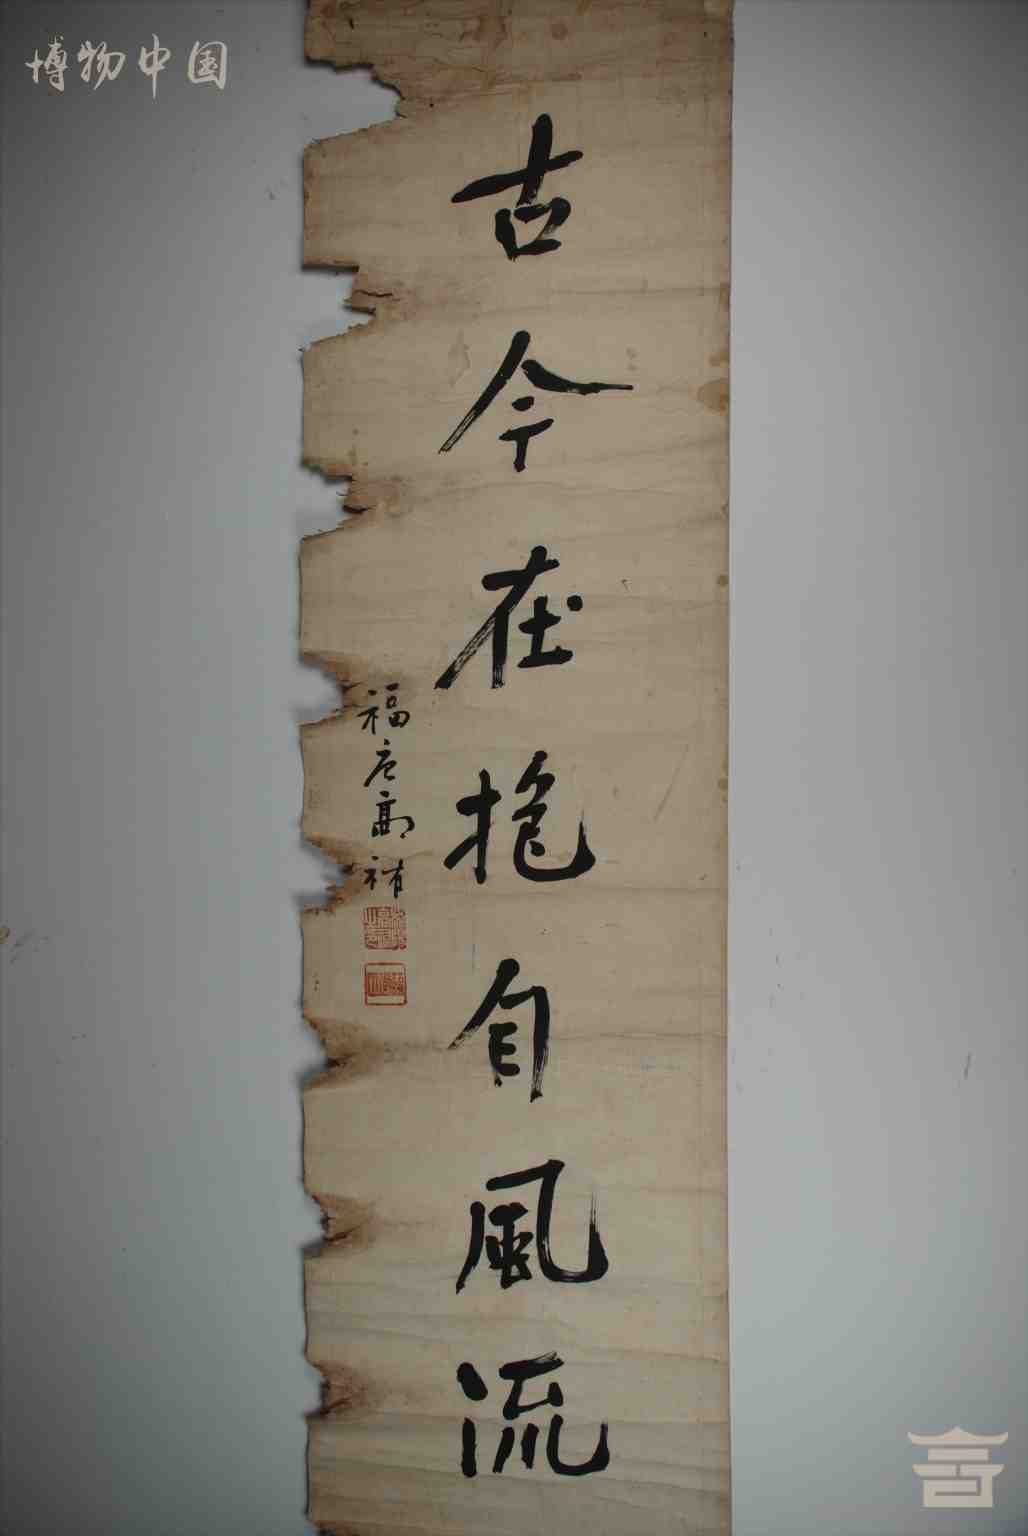 博物中国
古今在抱自風流
福唐高礽